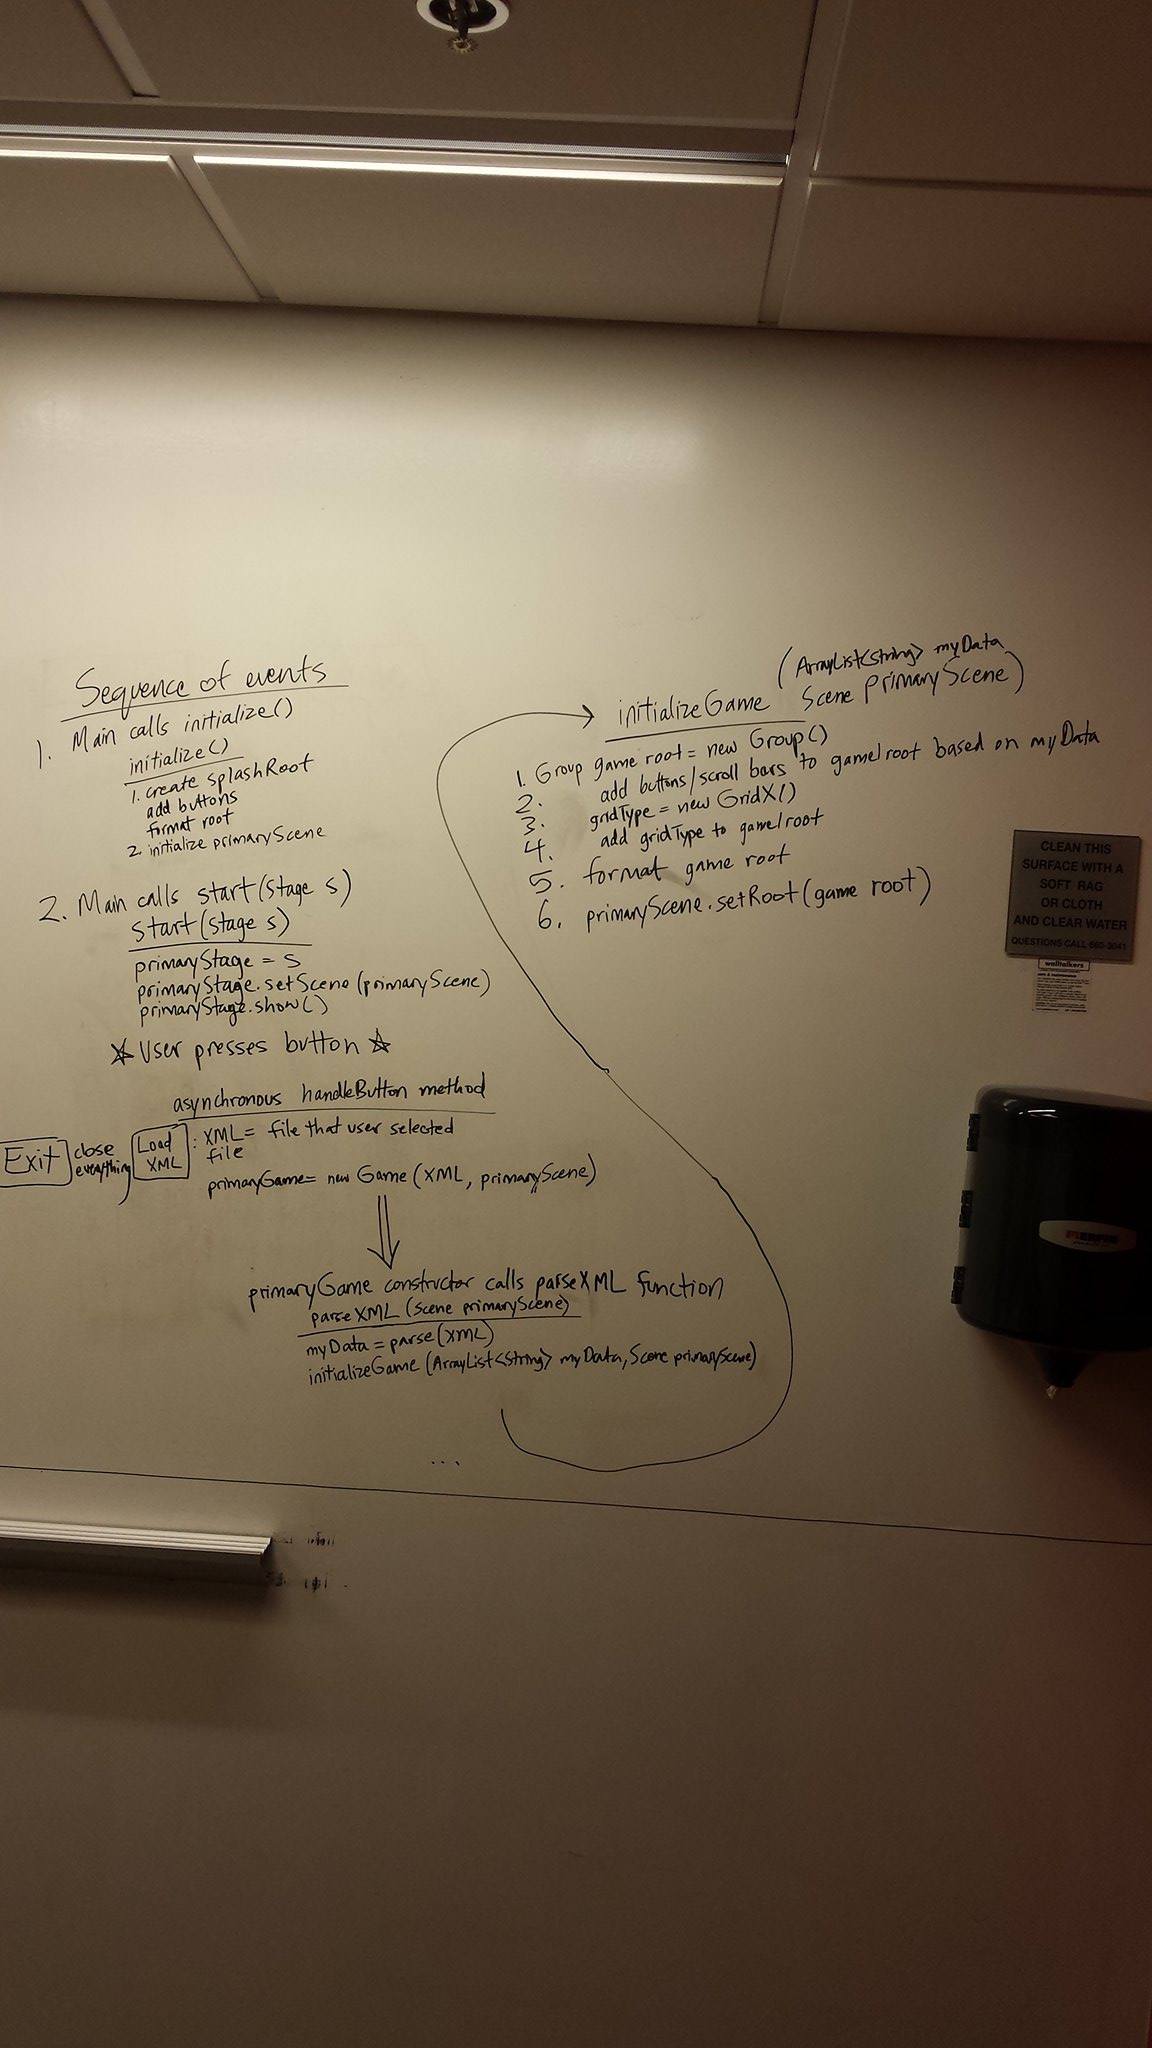 Sequence of events
1. Main calls initialize()
initialize()
1. create splashRoot
add buttons
format root
2. initialize primaryScene
2. Main calls start(Stage s)
start(stage s)
primaryStage = s
primaryStage.setScene(primaryScene)
primaryStage.show()
☆ User presses button ☆
asynchronous handleButton method
Exit close everything
Load XML : XML = file that user selected
file
primaryGame = new Game(XML, primaryScene)
primaryGame constructor calls parseXML function
parseXML (scene primaryScene)
myData = parse(XML)
initializeGame (ArrayList<String> myData, Scene primaryScene)
...
initializeGame (ArrayList<string> myData
Scene primaryScene)
1. Group game root = new Group()
2. add buttons/scroll bars to game root based on myData
3. gridType = new GridX()
4. add gridType to game root
5. format game root
6. primaryScene.setRoot(game root)
CLEAN THIS
SURFACE WITH A
SOFT RAG
OR CLOTH
AND CLEAR WATER
QUESTIONS CALL 660-3041
walltalkers